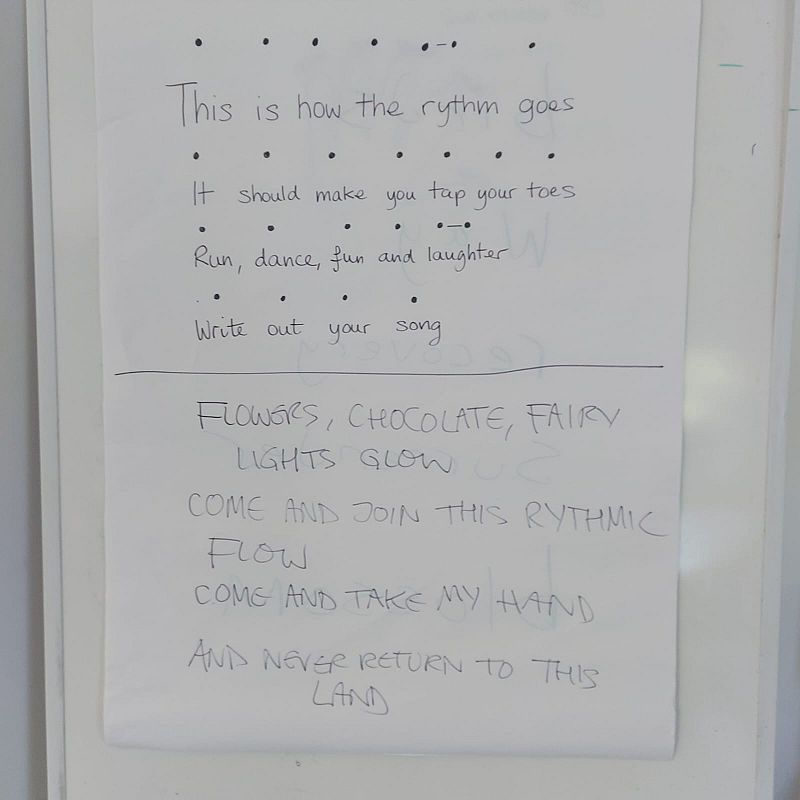 This is how the rythm goes
It should make you tap your toes
Run, dance, fun and laughter
Write out your song
FLOWERS, CHOCOLATE, FAIRY
LIGHTS GLOW
COME AND JOIN THIS RYTHMIC
FLOW
COME AND TAKE MY HAND
AND NEVER RETURN TO THIS
LAND